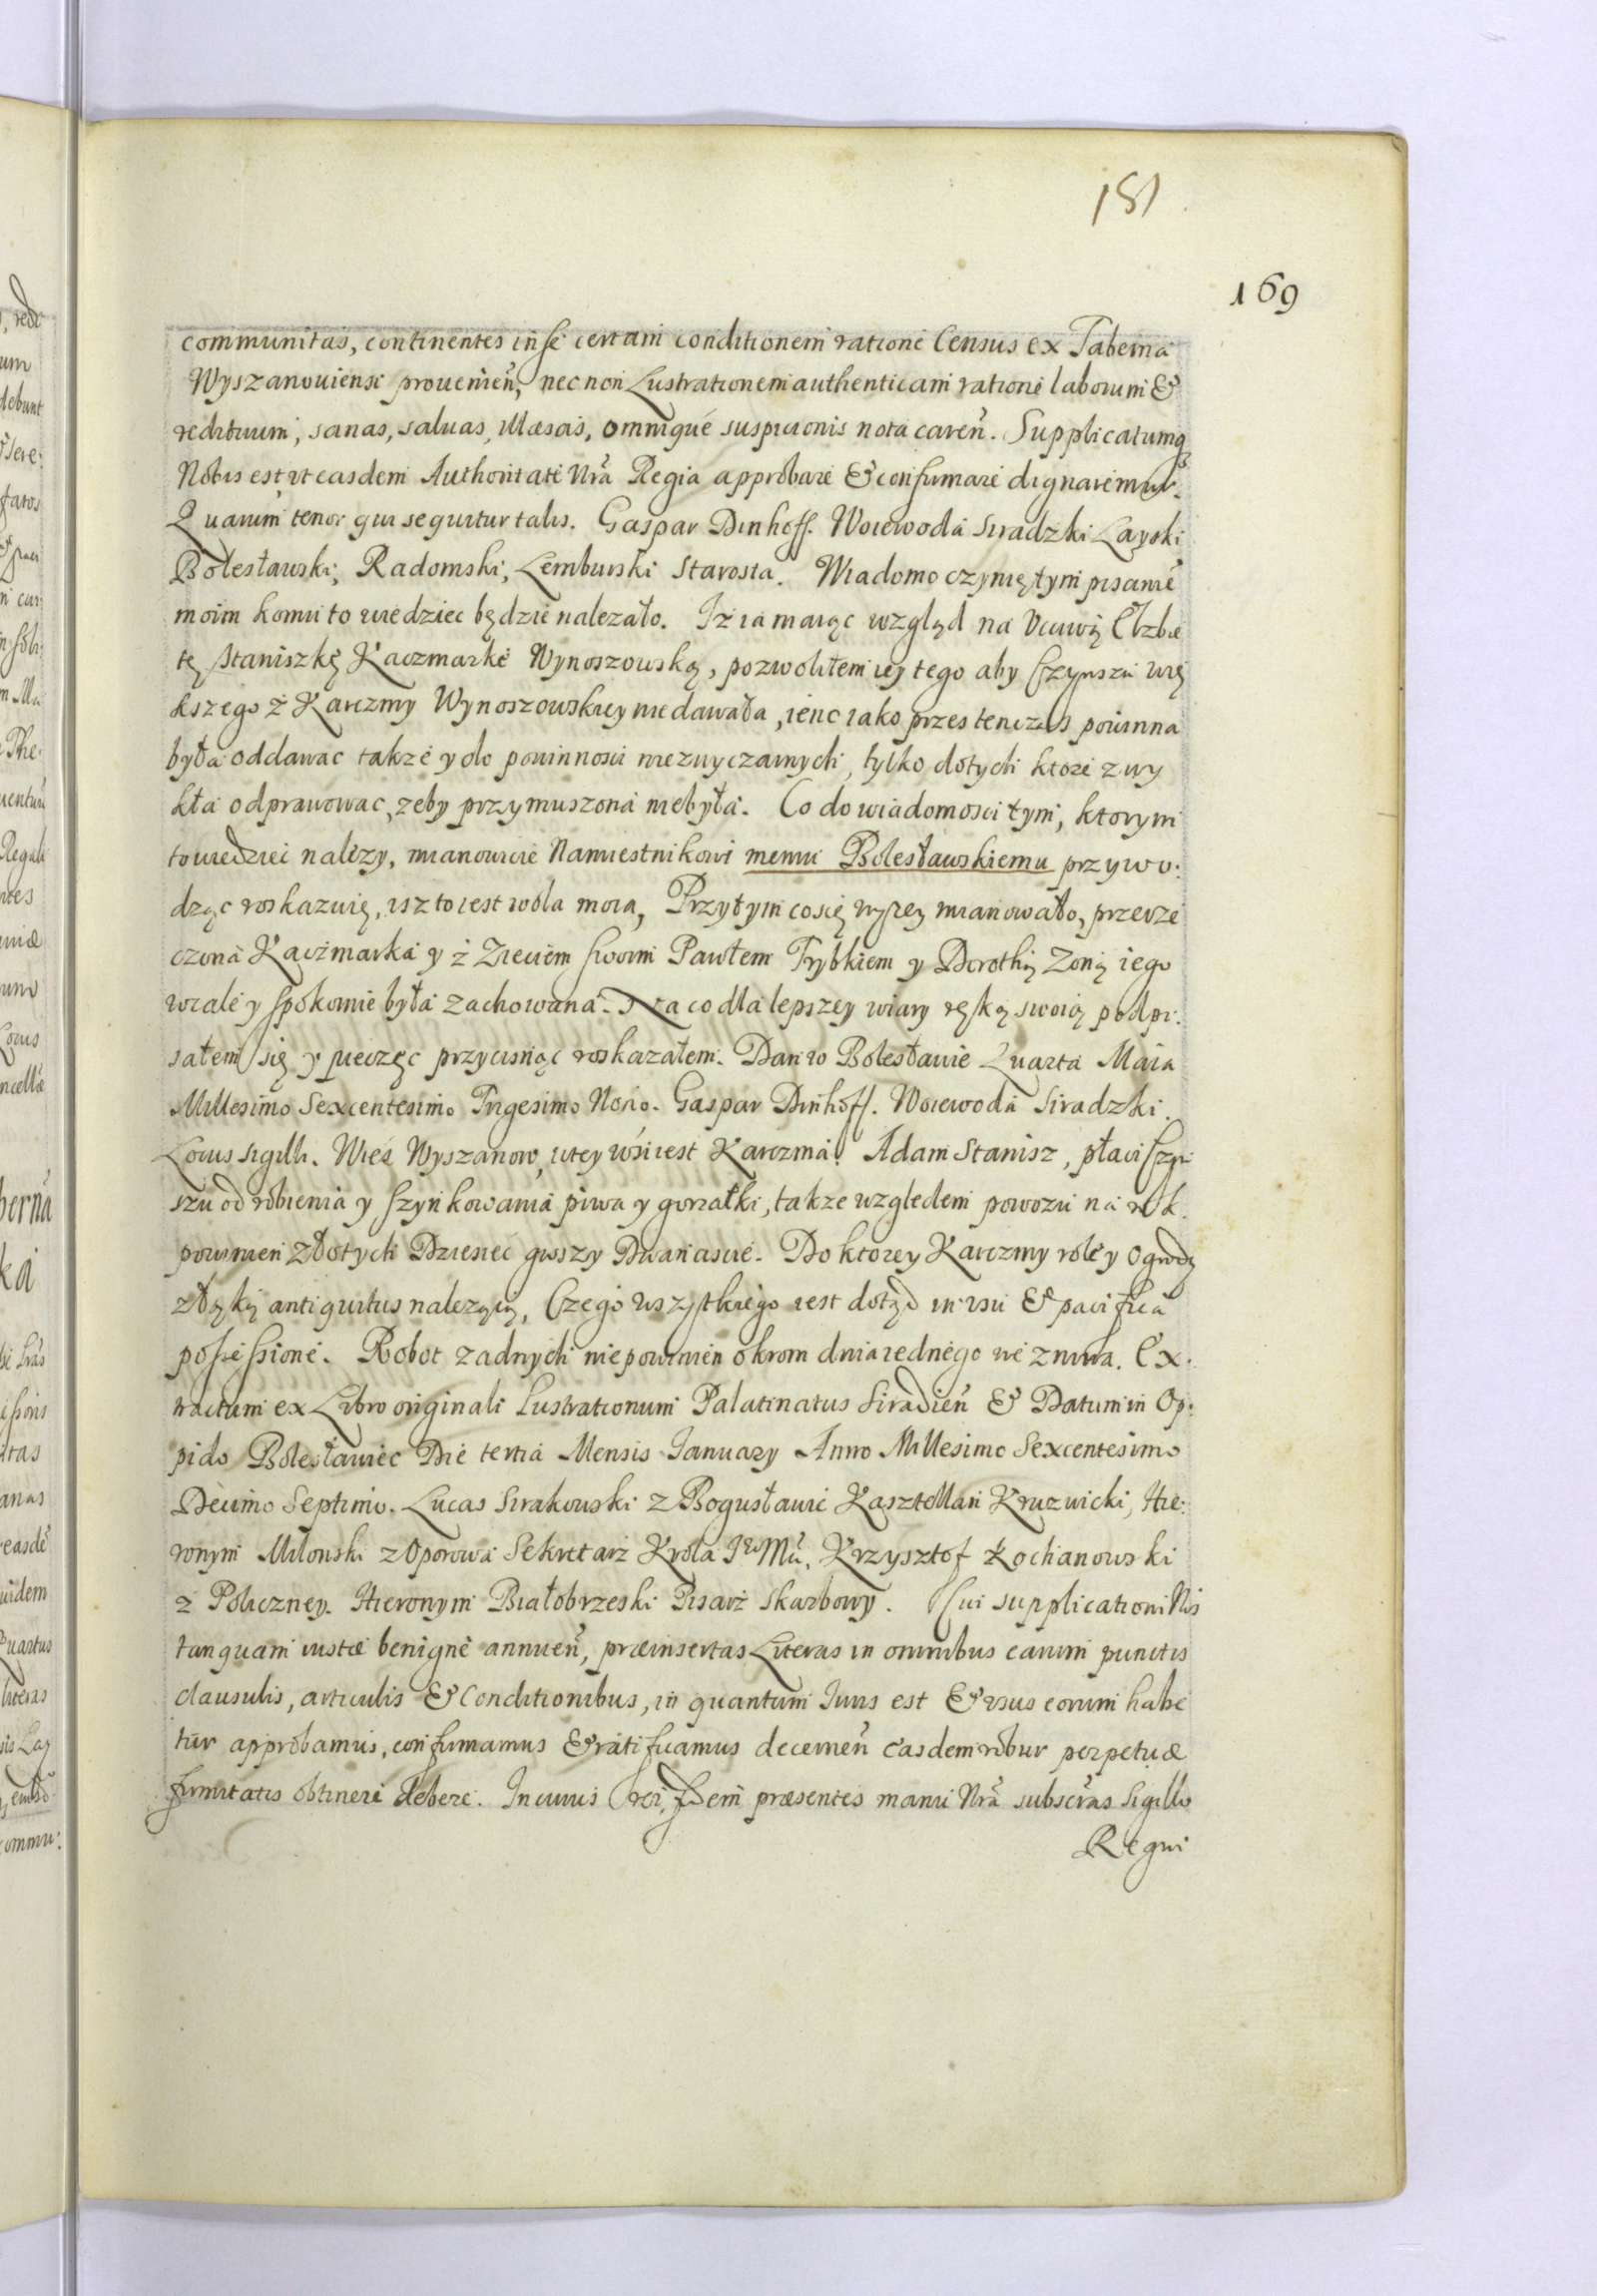 181
169
communitas, continentes in se certam conditionem ratione Census ex Taberna
Wyszanouiensi prouenień, nec non Lustrationem authenticam ratione laborum &
redituum, sanas, saluas, illæsas, omnique suspicionis nota careń. Supplicatumq
Nobis est vt easdem Authoritate Nrã Regia approbare & confirmare dignaremur.
Quarum tenor qui sequitur talis. Gaspar Dinhoff. Woiewoda Siradzki Layski
Bolesławski, Radomski, Lemburski Starosta. Wiadomo czynię tym pisanie
moim komu to wiedziec będzie nalezało. Iż ia maiąc wzgląd na Vcuwą Elzbie
tę Staniszkę Kaczmarkę Wynoszowską, pozwoliłem iey tego aby Czynszu wię
kszego z Karczmy Wynoszowskiey niedawała, ieno iako przes ten czas powinna
była oddawac takze y do powinności niezwyczaynych, tylko do tych ktore zwy
kła odprawowac, zeby przymuszona niebyła. Co do wiadomosci tym, ktorym
to wiedziec nalezy, mianowicie Namiestnikowi memu Bolesławskiemu przywo:
dząc roskazuię, isz to iest wola moia, Przytym co się wyzey mianowało, przerze
czona Kaczmarka y z Zięciem swoim Pawłem Trybkiem y Dorothą Zoną iego
wcale y spokoinie była zachowana. Na co dla lepszey wiary ręką swoią podpi:
sałem się y pieczęc przycisnąc roskazałem. Dan w Bolesławie Quarta Maia
Millesimo Sexcentesimo Trigesimo Nono. Gaspar Dinhoff. Woiewoda Siradzki.
Locus sigilli. Wieś Wyszanow, w tey wśi iest Karczma. Adam Stanisz, płaci Czyn
szu od robienia y szynkowania piwa y gorzałki, takze wzgledem powozu na rok
powinien złotych Dziesiec groszy Dwanascie. Do ktorey Karczmy role y Ogrody
z Łąką antiquitus nalezącą, Czego wszystkiego iest dotąd in vsu & pacifica
possessione. Robot zadnych niepowinien okrom dnia iednego we zniwa. Ex:
tractum ex Libro originali Lustrationum Palatinatus Siradień & Datum in Op:
pido Bolesławiec Die tertia Mensis Ianuary Anno Millesimo Sexcentesimo
Decimo Septimo. Lucas Sirakowski z Bogusławic Kasztellan Kruzwicki, Hie:
ronym Milonski z Oporowa Sekretarz Krola Io Mci, Krzysztof Kochanowski
z Policzney. Hieronym Białobrzeski Pisarz Skarbowy. Cui supplicationi Nos
tanquam iustæ benigne annueń, præinsertas Literas in omnibus earum punctis
clausulis, articulis & Conditionibus, in quantum Iuris est & vsus eorum habe
tur approbamus, confirmamus & ratificamus decerneń easdem robur perpetuæ
firmitatis obtinere debere. In cuius rei fidem præsentes manu Nrã subscras Sigillo
Regni